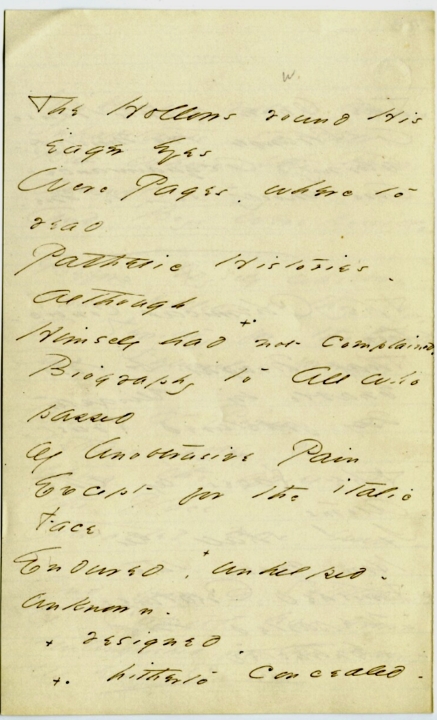 w.
The Hollows round His
eager Eyes
Were Pages. where to
read
Pathetic Histories.
although
Himself had + not complained.
Biography to All who
passed
Of Unobtrusive Pain
Except for the italic
Face
Endured, + unhelped -
unknown.
+ resigned.
+. hitherto Concealed.